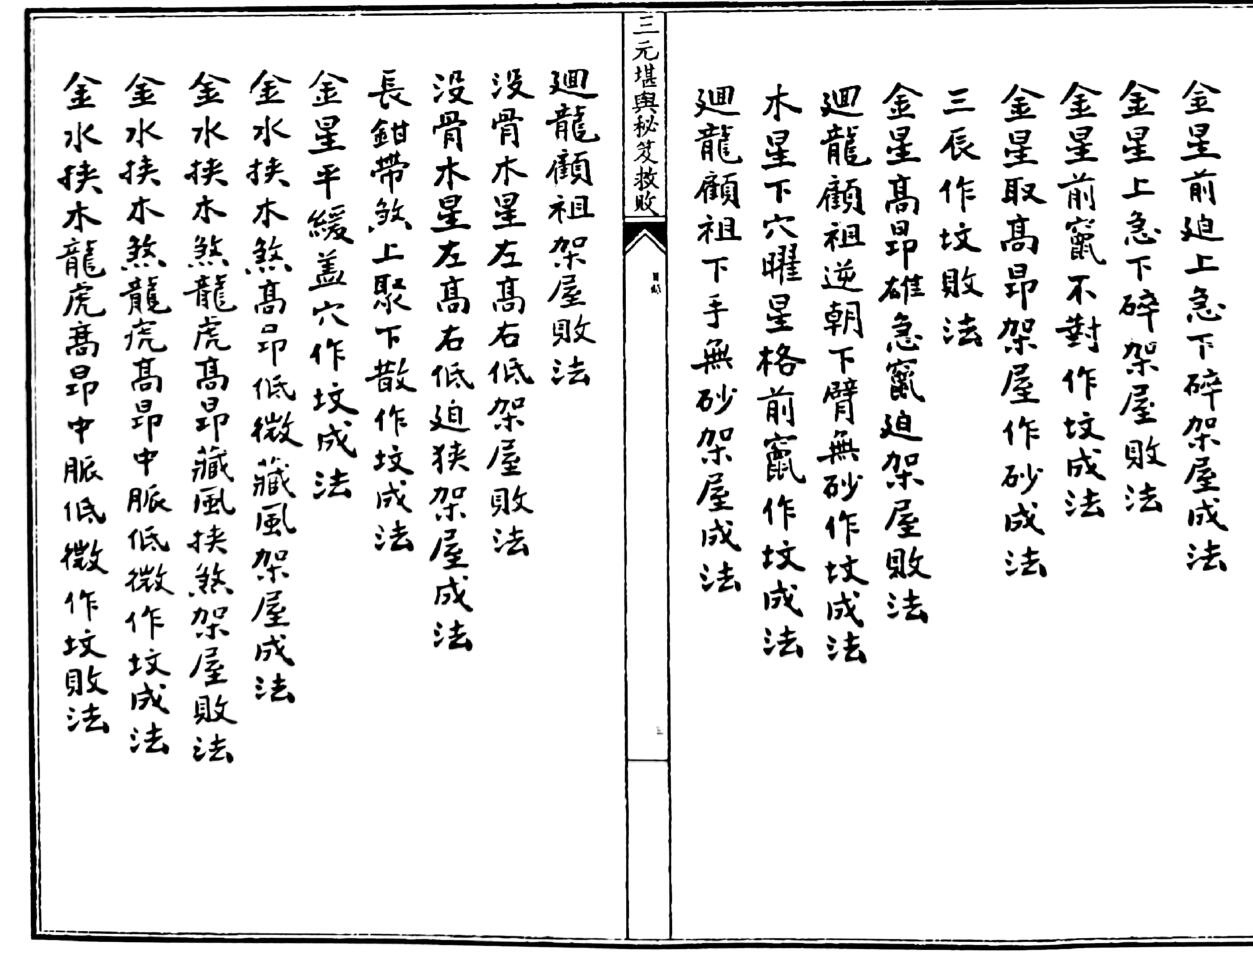 金星前迫上急下碎架屋成法
金星上急下碎架屋敗法
金星前竄不對作坟成法
金星取高昂架屋作砂成法
三辰作坟敗法
金星高昂雄急竄迫架屋敗法
廻龍顧祖逆朝下臂無砂作坟成法
木星下穴曜星格前竄作坟成法
廻龍顧祖下手無砂架屋成法
三元堪輿秘笈救敗
目錄
三
廻龍顧祖架屋敗法
没骨木星左高右低架屋敗法
没骨木星左高右低迫狹架屋成法
長鉗帶煞上聚下散作坟成法
金星平緩盖穴作坟成法
金水挟木煞高昂低微藏風架屋成法
金水挟木煞龍虎高昂藏風挟煞架屋敗法
金水挟木煞龍虎高昂中脈低微作坟成法
金水挟木龍虎高昂中脈低微作坟敗法